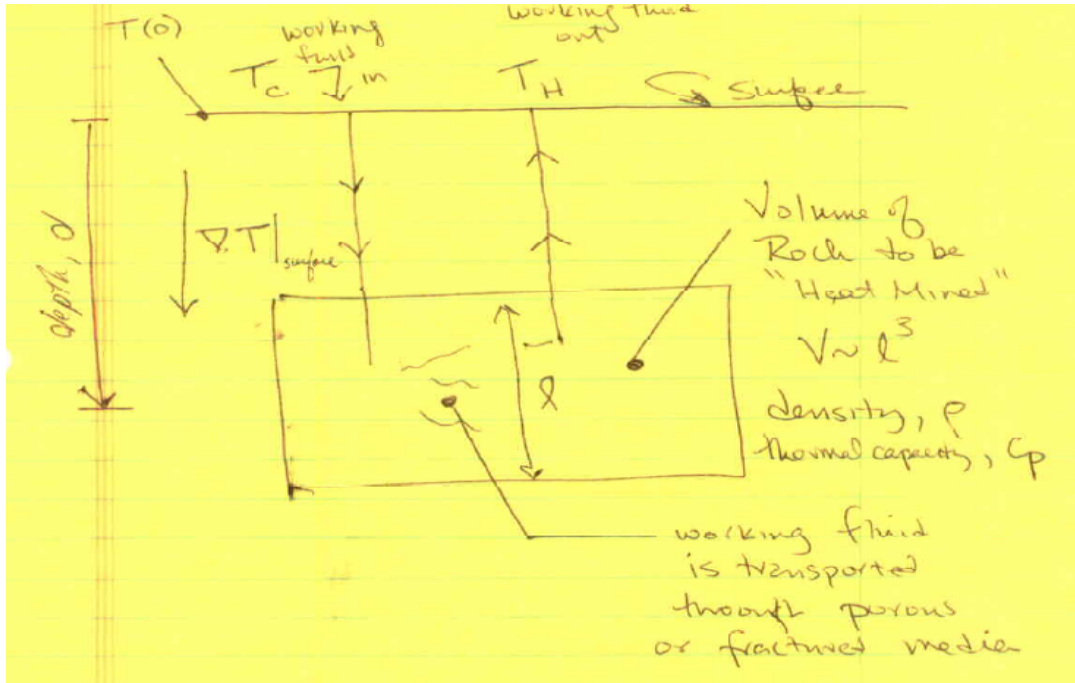 T(0)
working
fluid
in
T_C
working fluid
out
T_H
surface
depth, d
∇T|surface
l
Volume of
Rock to be
"Heat Mined"
V ~ l³
density, ρ
thermal capacity, Cp
working fluid
is transported
through porous
or fractured media